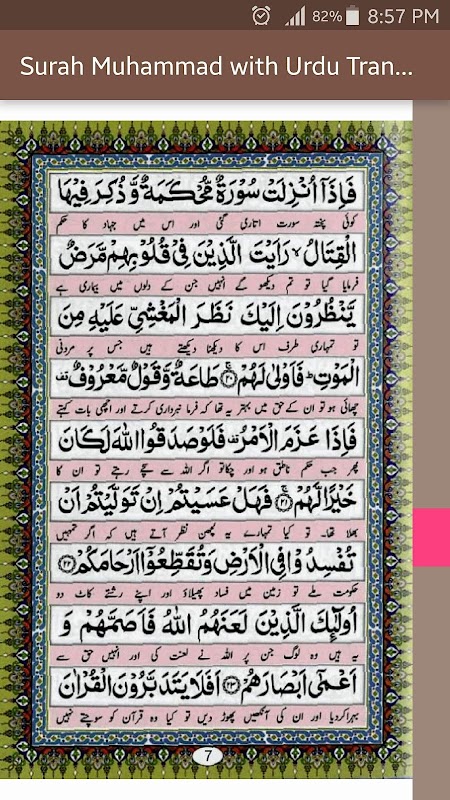 82% 8:57 PM
Surah Muhammad with Urdu Tran...
فَاِذَآ اُنْزِلَتْ سُوْرَةٌ مُّحْكَمَةٌ وَّذُكِرَ فِيْهَا
کوئی پختہ سورت اتاری گئی اور اس میں جہاد کا حکم
الْقِتَالُ ۙ رَاَيْتَ الَّذِيْنَ فِيْ قُلُوْبِهِمْ مَّرَضٌ
فرمایا گیا تو تم دیکھو گے انہیں جن کے دلوں میں بیماری ہے
يَّنْظُرُوْنَ اِلَيْكَ نَظَرَ الْمَغْشِيِّ عَلَيْهِ مِنَ
تو تمہاری طرف اس کا دیکھنا دیکھتے ہیں جس پر مردنی
الْمَوْتِ ؕ فَاَوْلٰى لَهُمْ ۚ﴿۲۰﴾ طَاعَةٌ وَّقَوْلٌ مَّعْرُوْفٌ
چھائی ہو تو ان کے حق میں بہتر یہ تھا کہ فرما نبرداری کرتے اور اچھی بات کہتے
فَاِذَا عَزَمَ الْاَمْرُ فَلَوْ صَدَقُوا اللّٰهَ لَكَانَ
پھر جب حکم ناطق ہو اور چکا تو اگر اللہ سے سچے رہتے تو ان کا
خَيْرًا لَّهُمْ ۚ﴿۲۱﴾ فَهَلْ عَسَيْتُمْ اِنْ تَوَلَّيْتُمْ اَنْ
بھلا تھا۔ تو کیا تمہارے یہ لچھن نظر آتے ہیں کہ اگر تمہیں
تُفْسِدُوْا فِي الْاَرْضِ وَتُقَطِّعُوْۤا اَرْحَامَكُمْ ﴿۲۲﴾
حکومت ملے تو زمین میں فساد پھیلاؤ اور اپنے رشتے کاٹ دو
اُولٰٓئِكَ الَّذِيْنَ لَعَنَهُمُ اللّٰهُ فَاَصَمَّهُمْ وَ
یہ ہیں وہ لوگ جن پر اللہ نے لعنت کی اور انہیں حق سے
اَعْمٰۤى اَبْصَارَهُمْ ﴿۲۳﴾ اَفَلَا يَتَدَبَّرُوْنَ الْقُرْاٰنَ
بہرا کردیا اور ان کی آنکھیں پھوڑ دیں تو کیا وہ قرآن کو سوچتے نہیں
7